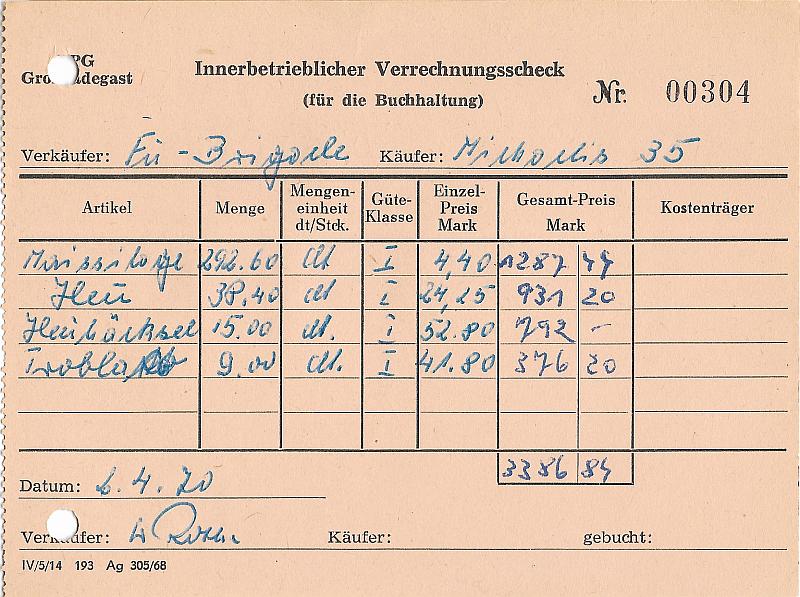 PG
Innerbetrieblicher Verrechnungsscheck
(für die Buchhaltung)
Nr. 00304
Verkäufer: Fu - Brigade Käufer: Michaelis 35
Artikel Menge Mengeneinheit dt/Stck. Güte-Klasse Einzel-Preis Mark Gesamt-Preis Mark Kostenträger
Maissilage 292.60 dt I 4,40 1287 44
Heu 38,40 dt I 24,25 931 20
Heuhäcksel 15.00 dt. I 52.80 792 -
9.00 dt. I 41.80 376 20
3386 84
Datum: 2.4.70
Verkäufer: Käufer: gebucht:
IV/5/14 193 Ag 305/68